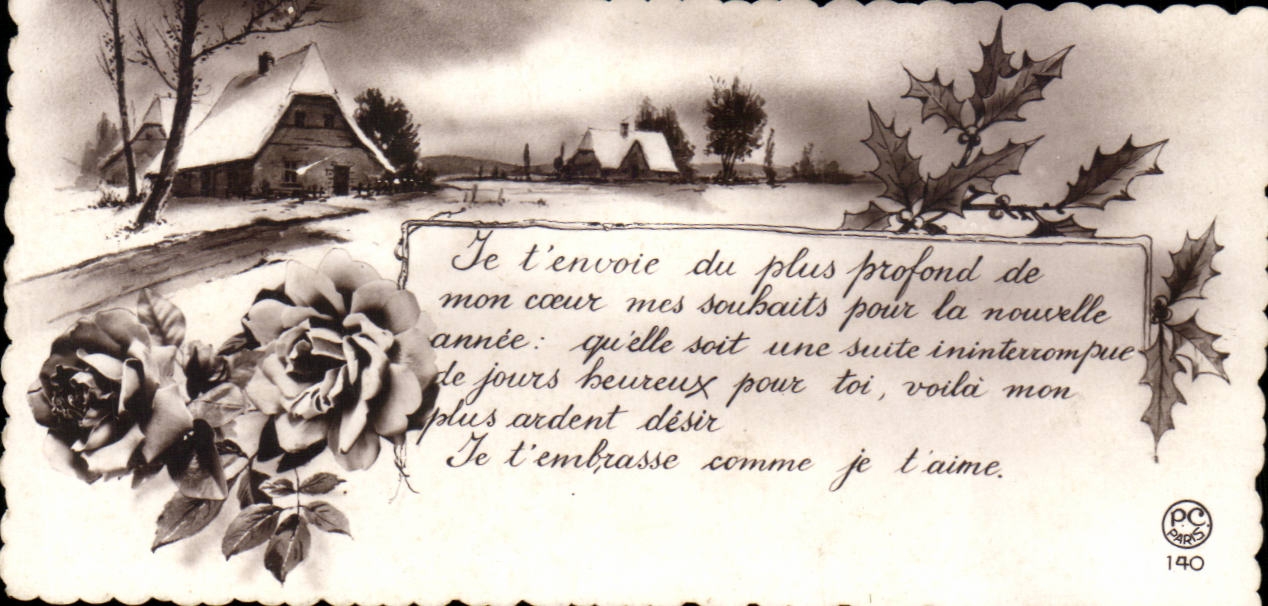 Je t'envoie du plus profond de
mon cœur mes souhaits pour la nouvelle
année : qu'elle soit une suite ininterrompue
de jours heureux pour toi, voilà mon
plus ardent désir
Je t'embrasse comme je t'aime.
P.C.
PARIS.
140